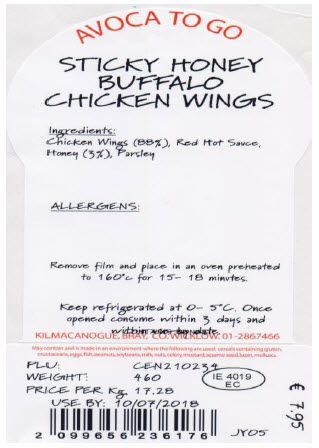 AVOCA TO GO
STICKY HONEY
BUFFALO
CHICKEN WINGS
Ingredients:
Chicken Wings (88%), Red Hot Sauce,
Honey (3%), Parsley
ALLERGENS:
Remove film and place in an oven preheated
to 160°c for 15- 18 minutes.
Keep refrigerated at 0- 5°C. Once
opened consume within 3 days and
within use by date
KILMACANOGUE, BRAY, CO.WICKLOW. 01-2867466
May contain and is made in an environment where the following are used: cereals containing gluten,
crustaceans, eggs, fish, peanuts, soybeans, milk, nuts, celery, mustard, sesame seed, lupin, molluscs.
PLU: CEN210234
WEIGHT: 460
PRICE PER Kg 17.28
USE BY: 10/07/2018
IE 4019
EC
€ 7.95
2 099656 236176
JY05